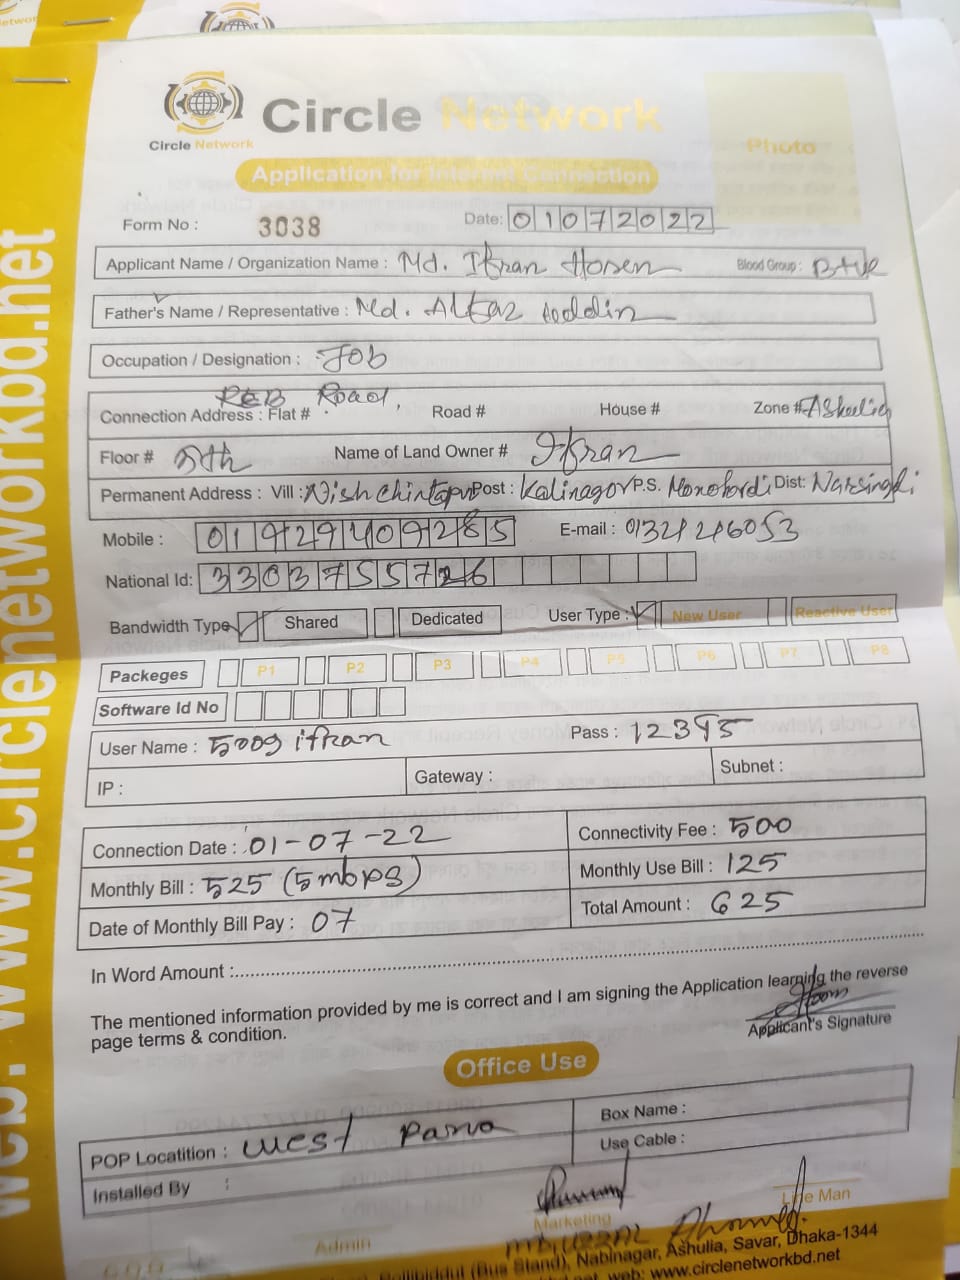 Circle Network
Circle Network
Photo
Application for Internet Connection
Form No : 3038 Date: 01072022
Applicant Name / Organization Name : Md. Ifran Hosen Blood Group :
Father's Name / Representative : Md. Altaz uddin
Occupation / Designation : Job
Road,
Connection Address : Flat # Road # House # Zone #
Floor # Name of Land Owner # Ifran
Permanent Address : Vill : Nishchintapur Post : Kalinagor P.S. Monohordi Dist: Narsingdi
Mobile : 01929409285 E-mail : 01324246053
National Id: 3303755726
Bandwidth Type Shared Dedicated User Type : New User Reactive User
Packeges P1 P2 P3 P4 P5 P6 P7 P8
Software Id No
User Name : 5009 ifran Pass : 12345
IP : Gateway : Subnet :
Connection Date : 01-07-22 Connectivity Fee : 500
Monthly Bill : 525 (5mbps) Monthly Use Bill : 125
Date of Monthly Bill Pay : 07 Total Amount : 625
In Word Amount :
The mentioned information provided by me is correct and I am signing the Application learning the reverse
page terms & condition.
Applicant's Signature
Office Use
POP Locatition : West Parva Box Name :
Installed By : Use Cable :
Admin Marketing Line Man
(Bus Stand), Nabinagar, Ashulia, Savar, Dhaka-1344
web: www.circlenetworkbd.net
web: www.circlenetworkbd.net